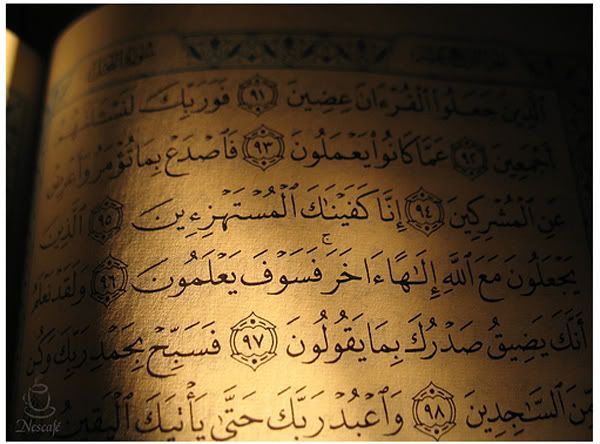 ٱلَّذِينَ جَعَلُوا۟ ٱلْقُرْءَانَ عِضِينَ ٩١ فَوَرَبِّكَ لَنَسْـَٔلَنَّهُمْ
أَجْمَعِينَ ٩٢ عَمَّا كَانُوا۟ يَعْمَلُونَ ٩٣ فَٱصْدَعْ بِمَا تُؤْمَرُ وَأَعْرِضْ
عَنِ ٱلْمُشْرِكِينَ ٩٤ إِنَّا كَفَيْنَـٰكَ ٱلْمُسْتَهْزِءِينَ ٩٥ ٱلَّذِينَ
يَجْعَلُونَ مَعَ ٱللَّهِ إِلَـٰهًا ءَاخَرَ ۚ فَسَوْفَ يَعْلَمُونَ ٩٦ وَلَقَدْ نَعْلَمُ
أَنَّكَ يَضِيقُ صَدْرُكَ بِمَا يَقُولُونَ ٩٧ فَسَبِّحْ بِحَمْدِ رَبِّكَ وَكُن
مِّنَ ٱلسَّـٰجِدِينَ ٩٨ وَٱعْبُدْ رَبَّكَ حَتَّىٰ يَأْتِيَكَ ٱلْيَقِينُ
Nescafé